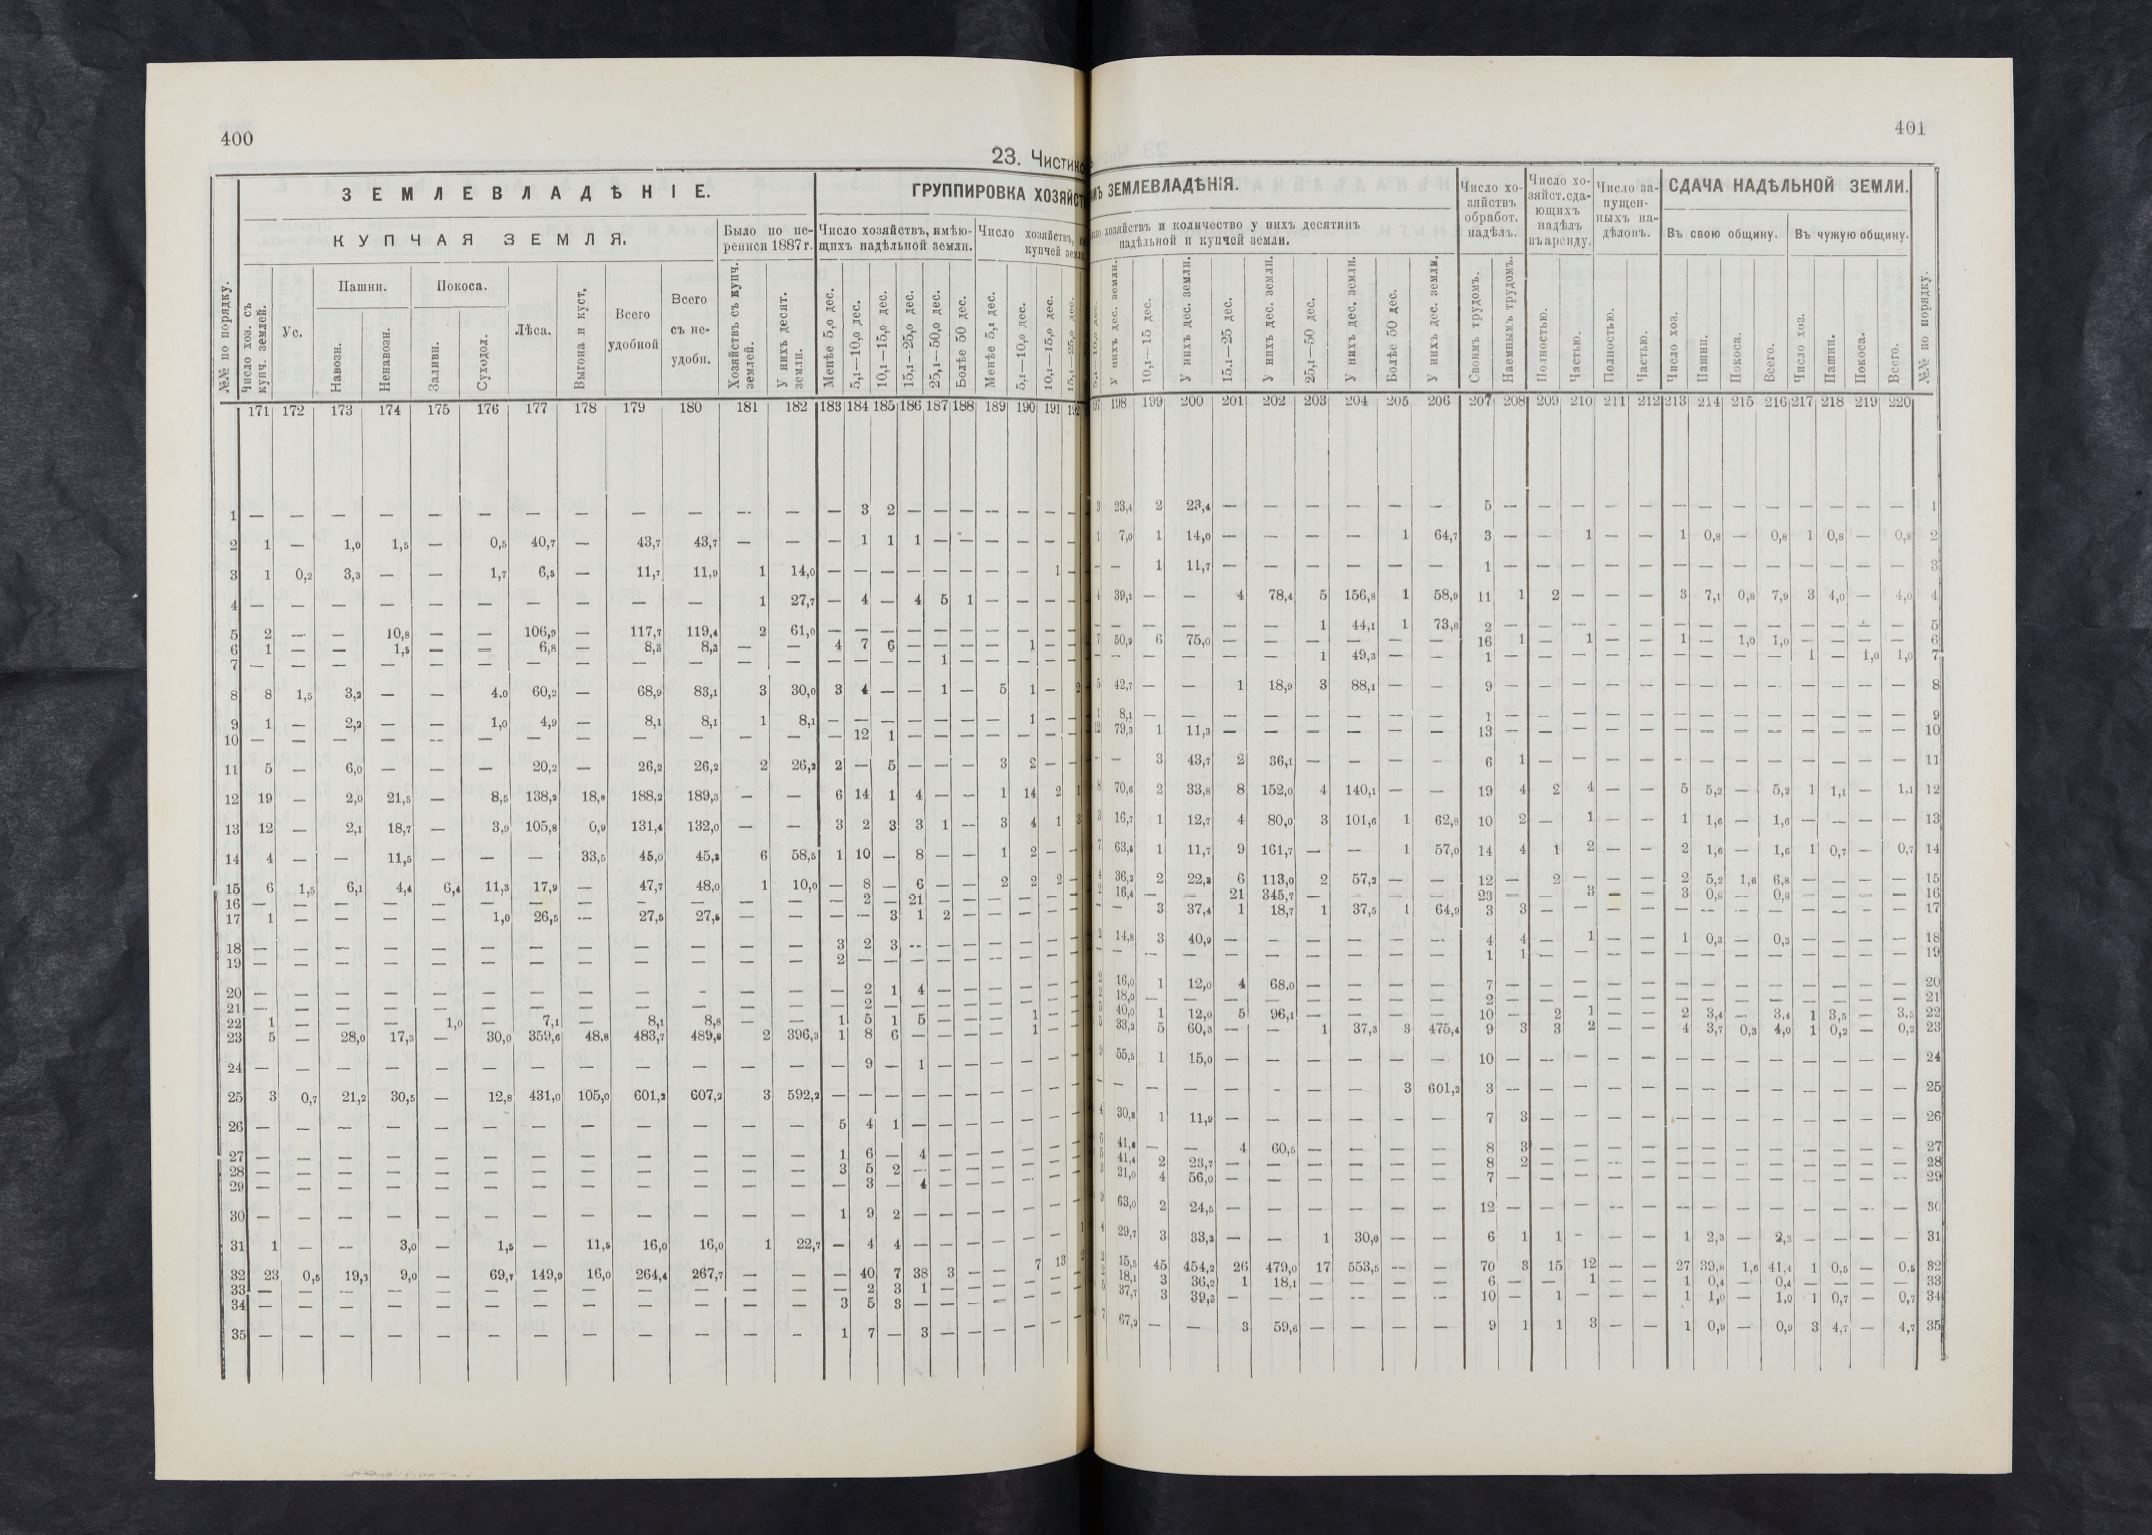 400
23. Чистико
ЗЕМЛЕВЛАДѢНІЕ.
ГРУППИРОВКА ХОЗЯЙСТ
КУПЧАЯ ЗЕМЛЯ.
Было по пе-
реписи 1887 г.
Число хозяйствъ, имѣю-
щихъ надѣльной земли.
Число хозяйствъ,
купчей
№№ по порядку.
Число хоз. съ
купч. землей.
Ус.
Пашни.
Навозн.
Ненавозн.
Покоса.
Заливн.
Суходол.
Лѣса.
Выгона и куст.
Всего
удобной
Всего
съ не-
удобн.
Хозяйствъ съ купч.
землей.
У нихъ десят.
земли.
Менѣе 5,0 дес.
5,1—10,0 дес.
10,1—15,0 дес.
15,1—25,0 дес.
25,1—50,0 дес.
Болѣе 50 дес.
Менѣе 5,1 дес.
5,1—10,0 дес.
10,1—15,0 дес.
15,1—25,0 дес.
171 172 173 174 175 176 177 178 179 180 181 182 183 184 185 186 187 188 189 190 191 192
1 — — — — — — — — — — — — — 3 2 — — — — — — —
2 1 — 1,0 1,5 — 0,5 40,7 — 43,7 43,7 — — — 1 1 1 — — — — — —
3 1 0,2 3,3 — — 1,7 6,5 — 11,7 11,9 1 14,0 — — — — — — — — 1 —
4 — — — — — — — — — — 1 27,7 — 4 — 4 5 1 — — — —
5 2 — — 10,8 — — 106,9 — 117,7 119,4 2 61,0 — — — — — — — — — —
6 1 — — 1,5 — — 6,8 — 8,3 8,3 — — 4 7 6 — — — — 1 — —
7 — — — — — — — — — — — — — — — — 1 — — — — —
8 8 1,5 3,2 — — 4,0 60,2 — 68,9 83,1 3 30,0 3 4 — — 1 — 5 1 — 2
9 1 — 2,2 — — 1,0 4,9 — 8,1 8,1 1 8,1 — — — — — — — 1 — —
10 — — — — — — — — — — — — — 12 1 — — — — — — —
11 5 — 6,0 — — — 20,2 — 26,2 26,2 2 26,2 2 — 5 — — — 3 2 — —
12 19 — 2,0 21,5 — 8,5 138,2 18,0 188,2 189,3 — — 6 14 1 4 — — 1 14 2 1
13 12 — 2,1 18,7 — 3,9 105,8 0,9 131,4 132,0 — — 3 2 3 3 1 — 3 4 1 3
14 4 — — 11,5 — — — 33,5 45,0 45,3 6 58,5 1 10 — 8 — — 1 2 — —
15 6 1,5 6,1 4,4 6,4 11,3 17,9 — 47,7 48,0 1 10,0 — 8 — 6 — — 2 2 2 —
16 — — — — — — — — — — — — — 2 — 21 — — — — — —
17 1 — — — — 1,0 26,5 — 27,5 27,5 — — — — 3 1 2 — — — — —
18 — — — — — — — — — — — — 3 2 3 — — — — — — —
19 — — — — — — — — — — — — 2 — — — — — — — — —
20 — — — — — — — — — — — — — 2 1 4 — — — — — —
21 — — — — — — — — — — — — — 2 — — — — — — — —
22 1 — — — 1,0 — 7,1 — 8,1 8,8 — — 1 5 1 5 — — — 1 — —
23 5 — 28,0 17,3 — 30,0 359,6 48,8 483,7 489,8 2 396,3 1 8 6 — — — — 1 — —
24 — — — — — — — — — — — — — 9 — 1 — — — — — —
25 3 0,7 21,2 30,5 — 12,8 431,0 105,0 601,2 607,2 3 592,2 — — — — — — — — — —
26 — — — — — — — — — — — — 5 4 1 — — — — — — —
27 — — — — — — — — — — — — 1 6 — 4 — — — — — —
28 — — — — — — — — — — — — 3 5 2 — — — — — — —
29 — — — — — — — — — — — — — 3 — 4 — — — — — —
30 — — — — — — — — — — — — 1 9 2 — — — — — — —
31 1 — — 3,0 — 1,5 — 11,5 16,0 16,0 1 22,7 — 4 4 — — — — — — 1
32 23 0,5 19,3 9,0 — 69,7 149,9 16,0 264,4 267,7 — — — 40 7 38 3 — — 7 13 2
33 — — — — — — — — — — — — — 2 3 1 — — — — — —
34 — — — — — — — — — — — — 3 5 3 — — — — — — —
35 — — — — — — — — — — — — 1 7 — 3 — — — — — —
401
МЪ ЗЕМЛЕВЛАДѢНІЯ.
хозяйствъ и количество у нихъ десятинъ
надѣльной и купчей земли.
Число хо-
зяйствъ
обработ.
надѣлъ.
Число хо-
зяйст.сда-
ющихъ
надѣлъ
въ аренду.
Число за-
пущен-
ныхъ на-
дѣловъ.
СДАЧА НАДѢЛЬНОЙ ЗЕМЛИ.
Въ свою общину.
Въ чужую общину.
У нихъ дес. земли.
10,1—15 дес.
У нихъ дес. земли.
15,1—25 дес.
У нихъ дес. земли.
25,1—50 дес.
У нихъ дес. земли.
Болѣе 50 дес.
У нихъ дес. земли.
Своимъ трудомъ.
Наемнымъ трудомъ.
Полностью.
Частью.
Полностью.
Частью.
Число хоз.
Пашни.
Покоса.
Всего.
Число хоз.
Пашни.
Покоса.
Всего.
№№ по порядку.
197 198 199 200 201 202 203 204 205 206 207 208 209 210 211 212 213 214 215 216 217 218 219 220
3 23,4 2 23,4 — — — — — — 5 — — — — — — — — — — — — — 1
1 7,0 1 14,0 — — — — 1 64,7 3 — — 1 — — 1 0,8 — 0,8 1 0,8 — 0,8 2
— — 1 11,7 — — — — — — 1 — — — — — — — — — — — — — 3
4 39,2 — — 4 78,4 5 156,8 1 58,9 11 1 2 — — — 3 7,1 0,8 7,9 3 4,0 — 4,0 4
— — — — — — 1 44,1 1 73,6 2 — — — — — — — — — — — — — 5
7 50,9 6 75,0 — — — — — — 16 1 — 1 — — 1 — 1,0 1,0 — — — — 6
— — — — — — 1 49,3 — — 1 — — — — — — — — — 1 — 1,0 1,0 7
5 42,7 — — 1 18,9 3 88,1 — — 9 — — — — — — — — — — — — — 8
1 8,1 — — — — — — — — 1 — — — — — — — — — — — — — 9
12 79,3 1 11,3 — — — — — — 13 — — — — — — — — — — — — — 10
— — 3 43,7 2 36,1 — — — — 6 1 — — — — — — — — — — — — 11
8 70,6 2 33,8 8 152,0 4 140,1 — — 19 4 2 4 — — 5 5,2 — 5,2 1 1,1 — 1,1 12
3 16,7 1 12,7 4 80,0 3 101,6 1 62,8 10 2 — 1 — — 1 1,6 — 1,6 — — — — 13
7 63,5 1 11,7 9 161,7 — — 1 57,0 14 4 1 2 — — 2 1,6 — 1,6 1 0,7 — 0,7 14
4 36,2 2 22,3 6 113,0 2 57,2 — — 12 — 2 — — — 2 5,2 1,6 6,8 — — — — 15
2 16,4 — — 21 345,7 — — — — 23 — — 3 — — 3 0,8 — 0,8 — — — — 16
— — 3 37,4 1 18,7 1 37,5 1 64,9 3 3 — — — — — — — — — — — — 17
2 14,8 3 40,9 — — — — — — 4 4 — 1 — — 1 0,3 — 0,3 — — — — 18
— — — — — — — — — — 1 1 — — — — — — — — — — — — 19
2 16,0 1 12,0 4 68,0 — — — — 7 — — — — — — — — — — — — — 20
2 18,0 — — — — — — — — 2 — — — — — — — — — — — — — 21
5 40,0 1 12,0 5 96,1 — — — — 10 — 2 1 — — 2 3,4 — 3,4 1 3,5 — 3,5 22
5 33,2 5 60,3 — — 1 37,3 3 475,4 9 3 3 2 — — 4 3,7 0,3 4,0 1 0,2 — 0,2 23
9 55,5 1 15,0 — — — — — — 10 — — — — — — — — — — — — — 24
— — — — — — — — 3 601,2 3 — — — — — — — — — — — — — 25
4 30,8 1 11,9 — — — — — — 7 3 — — — — — — — — — — — — 26
6 41,6 — — 4 60,5 — — — — 8 3 — — — — — — — — — — — — 27
5 41,4 2 23,7 — — — — — — 8 2 — — — — — — — — — — — — 28
3 21,0 4 56,0 — — — — — — 7 — — — — — — — — — — — — — 29
9 63,0 2 24,5 — — — — — — 12 — — — — — — — — — — — — — 30
4 29,7 3 33,3 — — 1 30,0 — — 6 1 1 — — — 1 2,3 — 2,3 — — — — 31
2 15,5 45 454,2 26 479,0 17 553,5 — — 70 3 15 12 — — 27 39,8 1,6 41,4 1 0,5 — 0,5 32
2 18,1 3 36,2 1 18,1 — — — — 6 — — 1 — — 1 0,4 — 0,4 — — — — 33
5 37,7 3 39,3 — — — — — — 10 — 1 — — — 1 1,0 — 1,0 1 0,7 — 0,7 34
7 67,2 — — 3 59,6 — — — — 9 1 1 3 — — 1 0,9 — 0,9 3 4,7 — 4,7 35